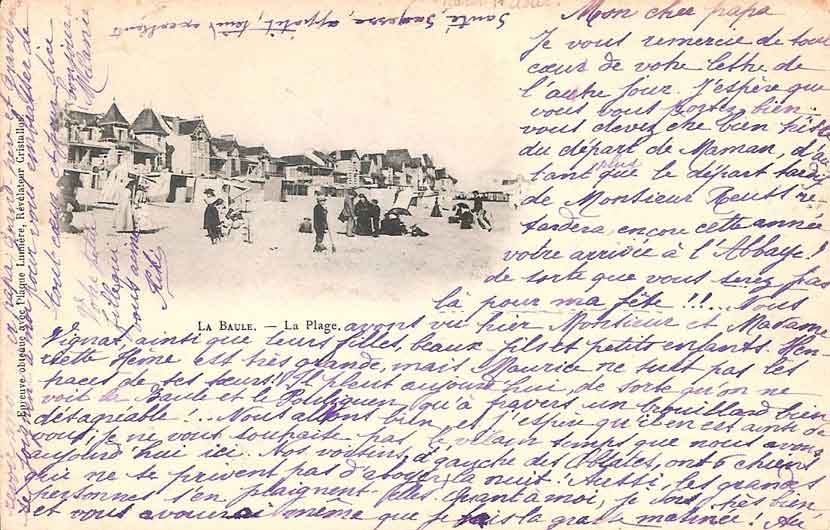 Mon cher papa
Je vous remercie de tout
cœur de votre lettre de
l'autre jour. J'espère que
vous vous portez bien.
vous devez être bien triste
du départ de Maman, d'au
tant plus que le départ tardif
de Monsieur re-
tardera, encore cette année
votre arrivée à l'Abbaye!
de sorte que vous serez pas
là pour ma fête !!... Nous
LA BAULE. — La Plage.
avons vu hier Monsieur et Madame
Vignat, ainsi que leurs filles, beaux fils et petits enfants. Hen-
riette est très grande, mais Maurice ne suit pas les
traces de ses sœurs! Il pleut aujourd'hui, de sorte qu'on ne
voit la Baule et le Pouliguen qu'à travers un brouillard bien
désagréable!... Nous allons bien, et j'espère qu'il en est ainsi de
vous! Je ne vous souhaite pas le vilain temps que nous avons
aujourd'hui ici. Nos voisins, d'gauche des, ont 6 chiens
qui ne se privent pas d'aboyer, la nuit! Aussi, les grandes
personnes s'en plaignent-elles. Quant à moi, je dors très bien
et vous avouerai même que je fais la grasse matinée!
Epreuve obtenue avec Plaque Lumière, Révélateur Cristallos.
pour vous embrasser de
tout cœur et pour vous dire
Mélanie
Votre
qui
vous aime
Santé, sagesse, appétit, tenue excellents